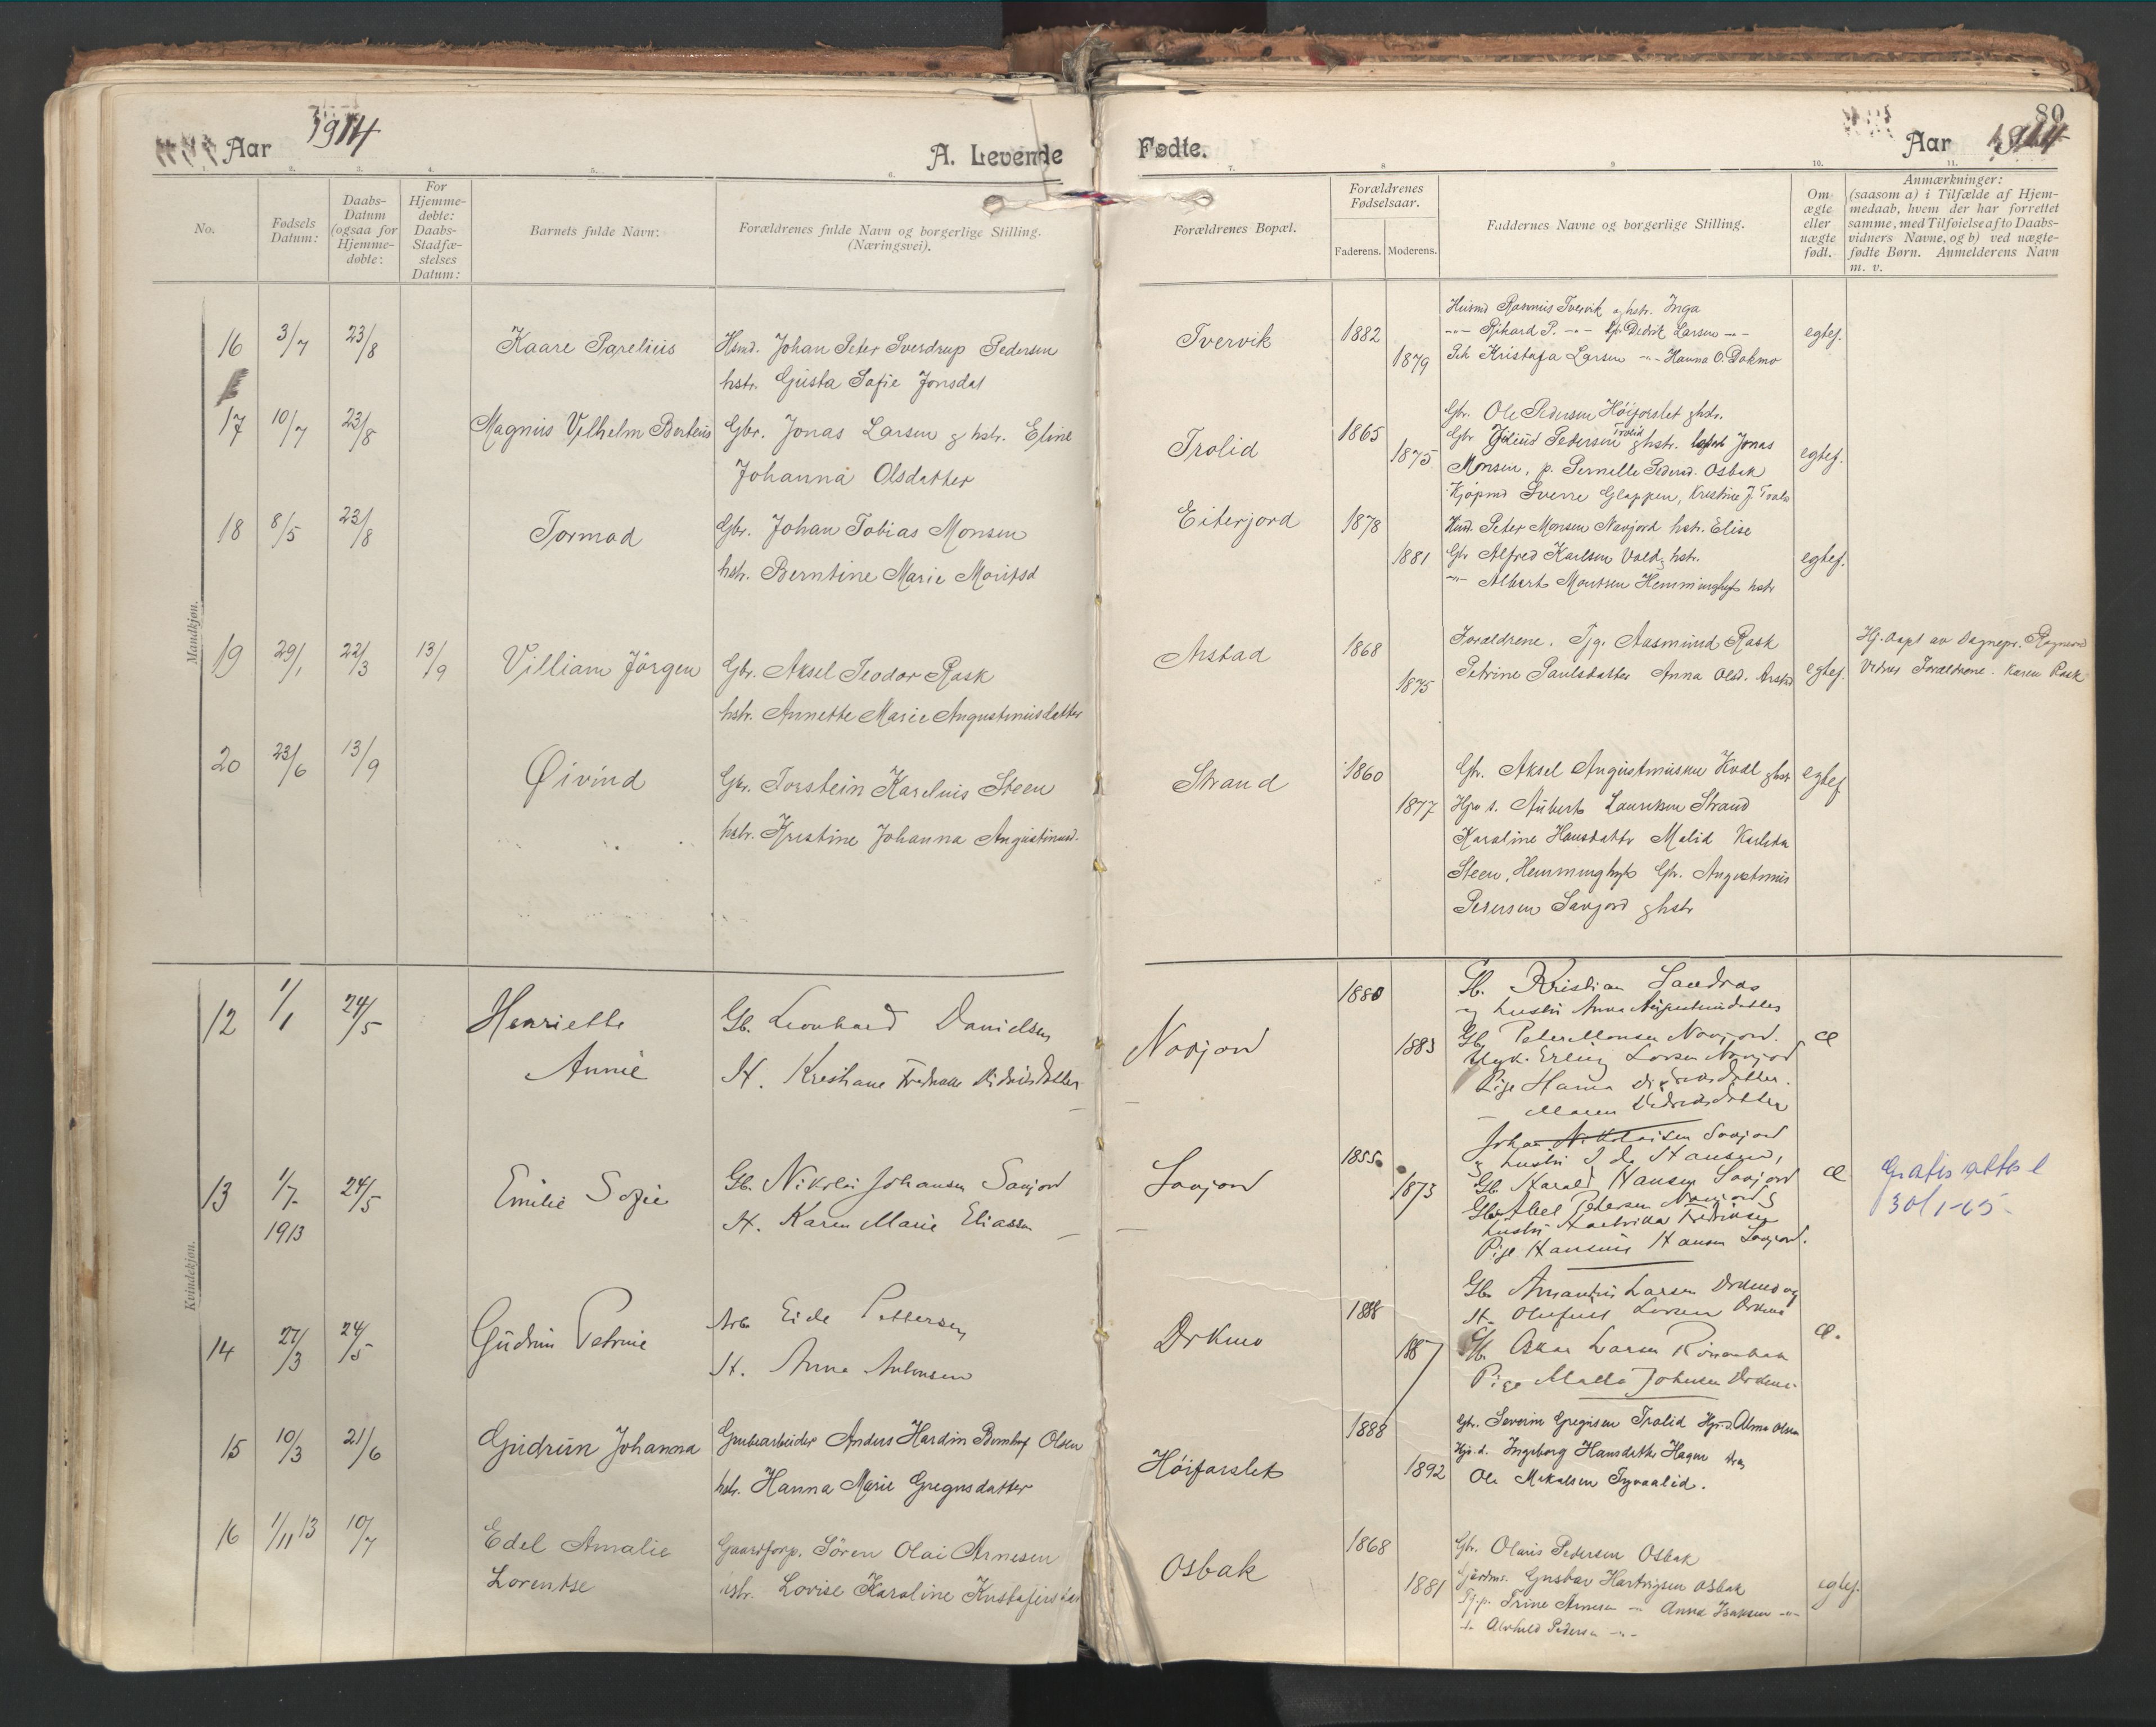 Aar 1914
A. Levende
Fødte.
Aar 1914
80
1. 2. 3. 4. 5. 6. 7. 8 9 10. 11.
No.
Fødsels Datum:
Daabs-Datum (ogsaa for Hjemme-døbte:
For Hjemme-døbte: Daabs-Stadfæ-stelses Datum:
Barnets fulde Navn:
Forældrenes fulde Navn og borgerlige Stilling. (Næringsvei).
Forældrenes Bopæl.
Forældrenes Fødselsaar.
Faderens. Moderens.
Faddernes Navne og borgerlige Stilling.
Om ægte eller uægte født.
Anmærkninger: (saasom a) i Tilfælde af Hjem-medaab, hvem der har forrettet samme, med Tilføielse af to Daabs-vidners Navne, og b) ved uægte-fødte Børn. Anmelderens Navn m. v.
Mandkjøn.
16 3/7 23/8 Kaare Parelius
Hsmd. Johan Peter Sverdrup Pedersen
hstr. Gusta Sofie Jonsdat
Tvervik 1882 1879
Husmd Rasmus Tvervik g hstr. Inga
-"- Rikard P. -"- Dedrik Larsen -"-
Kristofa Larsen -"- Hanna O. Dokmo
egtef.
17 10/7 23/8 Magnus Vilhelm Berteus
Gbr. Jonas Larsen g hstr. Eline
Johanna Olsdatter
Trolid 1865 1875
Gbr. Ole Pedersen Høiforslet g hstr.
Gbr Pedersen Trolid g hstr. Jonas
Monsen, p. Pernelle Pedersd. Osbak
Kjøpmd Sverre Glappen, Kristine J.
egtef.
18 8/5 23/8 Tormod
Gbr. Johan Tobias Monsen
hstr. Berntine Marie Moritsd
Eiterjord 1878 1881
Husd. Peter Monsen Navjord hstr. Elise
Gbr Alfred Karlsen Vold g hstr.
-"- Albert Montsen Hemminghyt hstr
egtef.
19 29/1 22/3 13/9 Villiam Jörgen
Gbr. Aksel Teodor Rask
hstr. Annette Marie Augustinusdatter
Arstad 1868 1875
Forældrene. Tjg. Aasmund Rask
Petrine Paulsdatter Anna Olsd. Arstad
egtef.
Hj. døpt av Sognepr.
Vidner Forældrene. Karen Rask
20 23/6 13/9 Øivind
Gbr. Torstein Karelius Steen
hstr. Kristine Johanna Augustinusd.
Strand 1860 1877
Gbr. Aksel Augustinusen Kvål g hstr
Hjv s. Aubert Lauritsen Strand
Karoline Hansdattr Malid
Steen, Hemminghyt Gbr. Augustinus
Pedersen Savjord g hstr
egtef
Kvindekjøn.
12 1/1 24/5 Henriette
Annie
Gb. Leonhard Danielsen
H. Kristiane Fredrikke Didriksdatter
Navjord 1880 1883
Gb. Kristian Sandras
og hustru Anna Augustinusdatter
Gb. Peter Monsen Navjord.
Ugk. Erling Larsen Navjord
Pige Hanna Didriksdatter.
- Maren Didriksdatter
æ
13 1/7 1913 24/5 Emilie Sofie
Gb. Nikolai Johansen Savjord
H. Karen Marie Eliassen
Savjord 1855 1873
Johan Nikolaisen Savjord
g hustru Ida Hansen,
Gb. Harald Hansen Savjord
Gb. Abel Petersen Navjord g
hustru Fredriksen
Pige Hansine Hansen Savjord.
æ
Gratis attest
30/1-65
14 27/3 24/5 Gudrun Petrine
Arb. Eide Pettersen
H. Anna Antonsen
Drkmo 1888 1887
Gb. Amantus Larsen Drkmo og
H. Larsen Drkmo
Gb. Oskar Larsen
Pige Malla Johnsen Drkmo.
æ.
15 10/3 21/6 Gudrun Johanna
Grubearbeider Anders Hardin Olsen
hstr. Hanna Marie Gregusdatter
Høiforslet 1888 1892
Gbr. Severin Gregusen Trolid Hjv. d. Alma Olsen
Hjv. d. Ingeborg Hansdatter Hagen
Ole Mikalsen
16 1/11 13 10/7 Edel Amalie
Lorentse
Gaardforp. Sören Olai Arnesen
hstr. Lovise Karoline
Osbak 1868 1881
Gbr. Olaus Pedersen Osbak
Gustav Hartvigsen Osbak
Tj.p. Trine Arnesen -"- Anna Isaksen -"-
Alvhild Pedersen -"-
egtef.